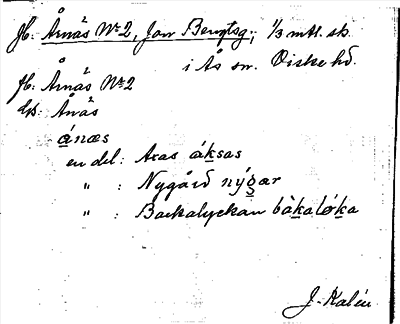 fb: Årnäs Nr 2, Jon Bengtsg.; 1/3 mtl. sk.
i Ås sn. Viske hd.
fb. Årnäs Nr 2
Up: Ånäs
ánæs
en del: Axas áksas
" : Nygård nýgar
" : Backalyckan bàkaløka
J. Kalén